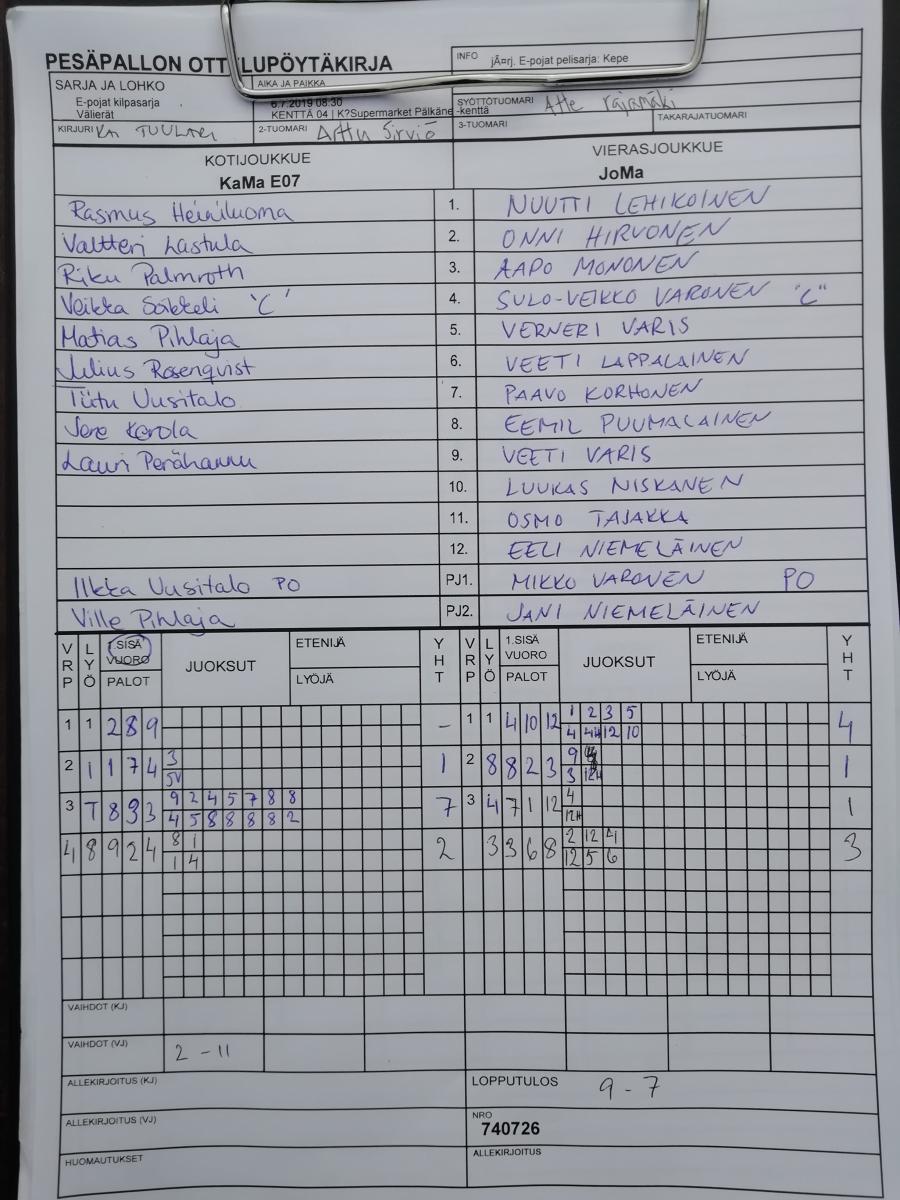 PESÄPALLON OTTELUPÖYTÄKIRJA
INFO jÃ¤rj. E-pojat pelisarja: Kepe
SARJA JA LOHKO
E-pojat kilpasarja
Välierät
AIKA JA PAIKKA
6.7.2019 08:30
KENTTÄ 04 | K?Supermarket Pälkäne -kenttä
SYÖTTÖTUOMARI Atte rajamäki
KIRJURI TUULARI
2-TUOMARI Arttu Sirviö
3-TUOMARI
TAKARAJATUOMARI
KOTIJOUKKUE VIERASJOUKKUE
KaMa E07 JoMa
Rasmus Heiniluoma 1. NUUTTI LEHIKOINEN
Valtteri Lastula 2. ONNI HIRVONEN
Riku Palmroth 3. AAPO MONONEN
Veikka Säkkeli 'C' 4. SULO-VEIKKO VARONEN "C"
Matias Pihlaja 5. VERNERI VARIS
Julius Rosenqvist 6. VEETI LAPPALAINEN
Tiitu Uusitalo 7. PAAVO KORHONEN
Jere Kerola 8. EEMIL PUUMALAINEN
Lauri Perähannu 9. VEETI VARIS
10. LUUKAS NISKANEN
11. OSMO TAJAKKA
12. EELI NIEMELÄINEN
Ilkka Uusitalo PO PJ1. MIKKO VARONEN PO
Ville Pihlaja PJ2. JANI NIEMELÄINEN
VRP LYÖ 1.SISÄ VUORO PALOT JUOKSUT ETENIJÄ LYÖJÄ YHT VRP LYÖ 1.SISÄ VUORO PALOT JUOKSUT ETENIJÄ LYÖJÄ YHT
1 1 2 8 9 - 1 1 4 10 12 1 2 3 5 4
4 4H 12 10
2 1 1 7 4 3 1 2 8 8 2 3 9 1
5V 3
3 T 8 9 3 9 2 4 5 7 8 8 7 3 4 7 1 12 4 1
4 5 8 8 8 8 2 12H
4 8 9 2 4 8 1 2 3 3 6 8 2 12 4 3
1 4 12 5 6
VAIHDOT (KJ)
VAIHDOT (VJ) 2 - 11
ALLEKIRJOITUS (KJ) LOPPUTULOS 9 - 7
ALLEKIRJOITUS (VJ) NRO
740726
HUOMAUTUKSET ALLEKIRJOITUS